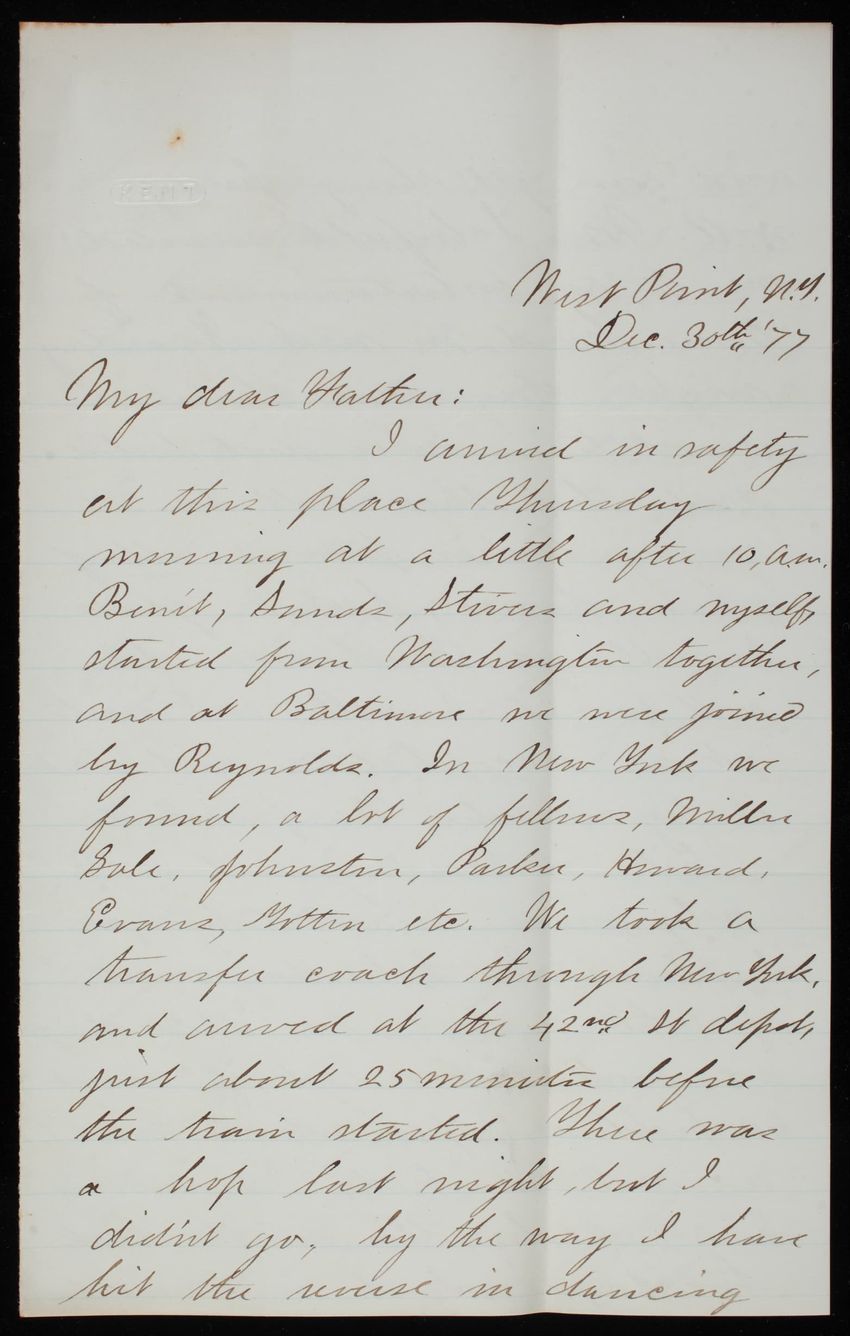 KENT
West Point, N.Y.
Dec. 30th '77
My dear Father:
I arrived in safety
at this place Thursday
morning at a little after 10, a.m.
Benét, Sands, Stivers and myself,
started from Washington together,
and at Baltimore we were joined
by Reynolds. In New York we
found, a lot of fellows, Miller
Gale, Johnston, Parker, Howard,
Evans, etc. We took a
transfer coach through New York,
and arrived at the 42nd St depot,
just about 25 minutes before
the train started. There was
a hop last night, but I
didn't go, by the way I have
hit the reverse in dancing